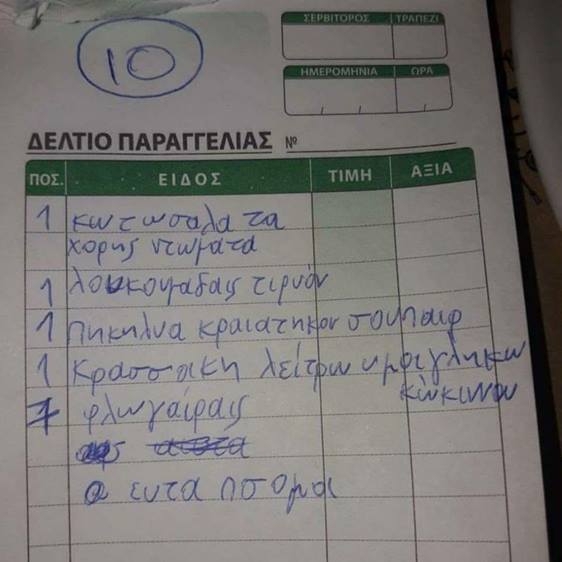 10
ΣΕΡΒΙΤΟΡΟΣ ΤΡΑΠΕΖΙ
ΗΜΕΡΟΜΗΝΙΑ ΩΡΑ
ΔΕΛΤΙΟ ΠΑΡΑΓΓΕΛΙΑΣ Νº
ΠΟΣ. ΕΙΔΟΣ ΤΙΜΗ ΑΞΙΑ
1 κωτωσαλα τα
χορης ντωματα
1 λουκουμαδαις τιρυόν
1 πηκηλυα κραιατηκον σουπαιρ
1 Κρασσακη λείτρω ημοιγληκω
κώκινου
7 φλωγαίραις
ευτα πσομοι